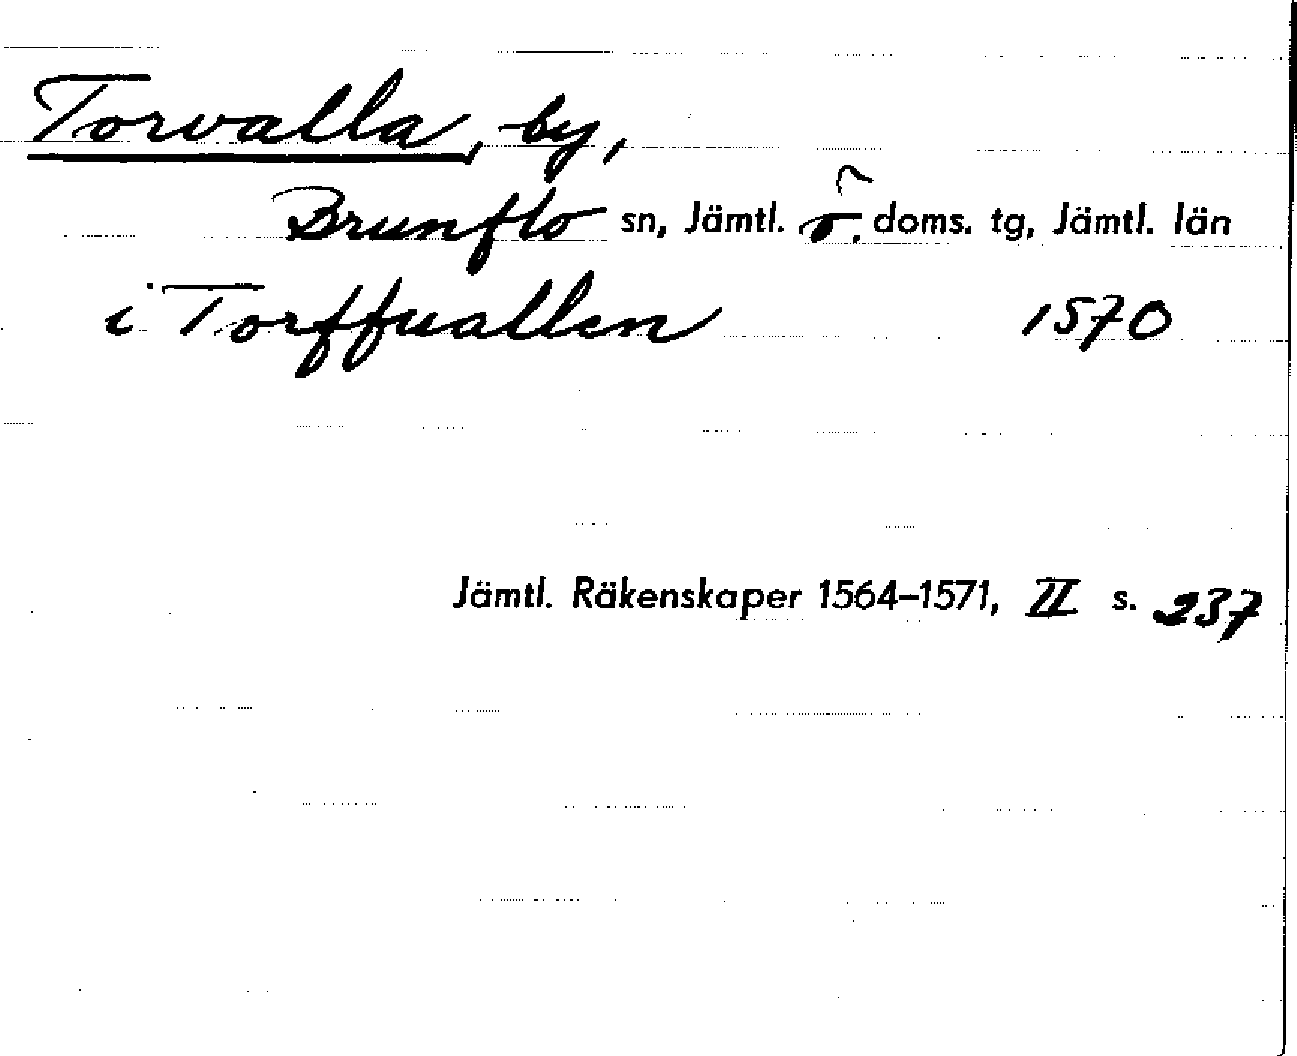 Torvalla, by,
Brunflo sn, Jämtl. ö. doms. tg, Jämtl. län
i Torffuallen 1570
Jämtl. Räkenskaper 1564–1571, II s. 237